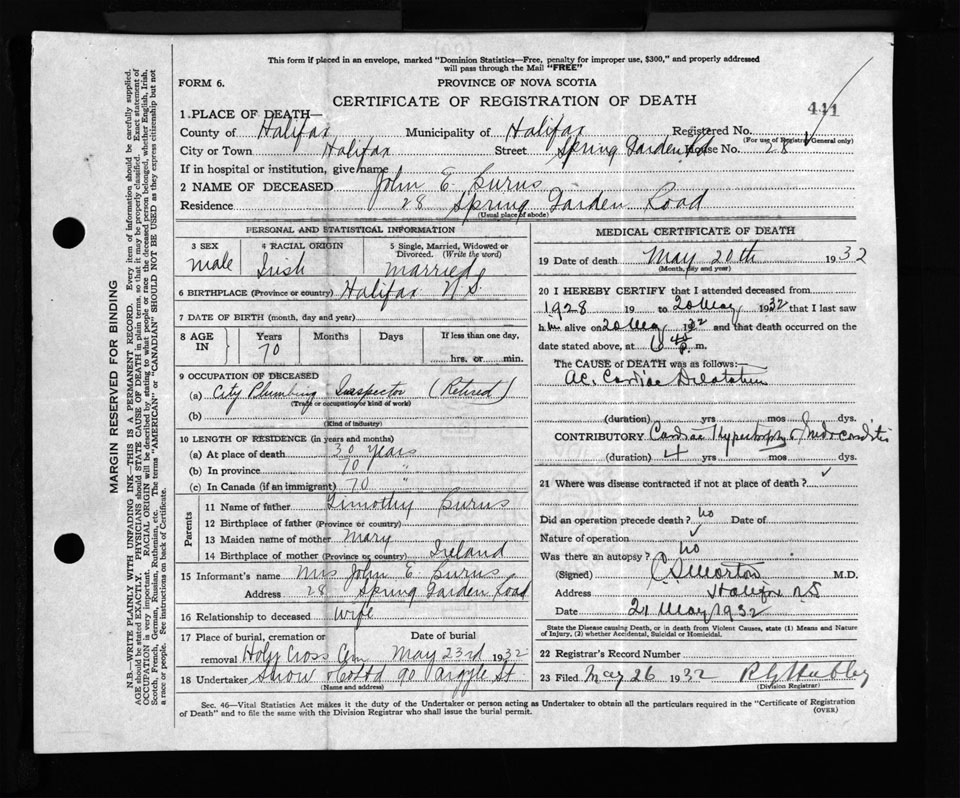 This form if placed in an envelope, marked "Dominion Statistics—Free, penalty for improper use, $300," and properly addressed
will pass through the Mail "FREE"
FORM 6.
PROVINCE OF NOVA SCOTIA
CERTIFICATE OF REGISTRATION OF DEATH
441
1 PLACE OF DEATH—
County of Halifax Municipality of Halifax Registered No.
(For use of Registrar General only)
City or Town Halifax Street Spring Garden Rd House No. 28
If in hospital or institution, give name
2 NAME OF DECEASED John E. Burns
Residence 28 Spring Garden Road
(Usual place of abode)
PERSONAL AND STATISTICAL INFORMATION
3 SEX
male
4 RACIAL ORIGIN
Irish
5 Single, Married, Widowed or
Divorced. (Write the word)
Married
6 BIRTHPLACE (Province or country) Halifax N.S.
7 DATE OF BIRTH (month, day and year)
8 AGE
IN
Years
70
Months
Days
If less than one day,
hrs. or min.
9 OCCUPATION OF DECEASED
(a) City Plumbing Inspector (Retired)
(Trade or occupation or kind of work)
(b)
(Kind of industry)
10 LENGTH OF RESIDENCE (in years and months)
(a) At place of death 30 years
(b) In province 70 "
(c) In Canada (if an immigrant) 70 "
Parents
11 Name of father Timothy Burns
12 Birthplace of father (Province or country)
13 Maiden name of mother Mary
14 Birthplace of mother (Province or country) Ireland
15 Informant's name Mrs John E. Burns
Address 28 Spring Garden Road
16 Relationship to deceased Wife
17 Place of burial, cremation or Date of burial
removal Holy Cross Cem May 23rd 1932
18 Undertaker Snow & Co Ltd 90 Argyle St
(Name and address)
MEDICAL CERTIFICATE OF DEATH
19 Date of death May 20th 1932
(Month, day and year)
20 I HEREBY CERTIFY that I attended deceased from
1928 19 to 20 May 1932 that I last saw
h im alive on 20 May 1932 and that death occurred on the
date stated above, at 6 45 p. m.
The CAUSE OF DEATH was as follows:—
Ac. Cardiac Dilatation
(duration) yrs mos dys.
CONTRIBUTORY Cardiac Hypertrophy &
(duration) 4 yrs mos dys.
21 Where was disease contracted if not at place of death?
Did an operation precede death? no Date of
Nature of operation
Was there an autopsy? no
(Signed) C S Morton M.D.
Address Halifax N.S
Date 21 May 1932
State the Disease causing Death, or in death from Violent Causes, state (1) Means and Nature
of Injury, (2) whether Accidental, Suicidal or Homicidal.
22 Registrar's Record Number
23 Filed May 26 1932
(Division Registrar)
Sec. 46—Vital Statistics Act makes it the duty of the Undertaker or person acting as Undertaker to obtain all the particulars required in the "Certificate of Registration
of Death" and to file the same with the Division Registrar who shall issue the burial permit.
(OVER)
MARGIN RESERVED FOR BINDING
N.B.—WRITE PLAINLY WITH UNFADING INK—THIS IS A PERMANENT RECORD. Every item of information should be carefully supplied.
AGE should be stated EXACTLY. PHYSICIANS should STATE CAUSE OF DEATH in plain terms, so that it may be properly classified. Exact statement of
OCCUPATION is very important. RACIAL ORIGIN will be described by stating to what people or race the deceased person belonged, whether English, Irish,
Scotch, French, German, Russian, Ruthenian, etc. The terms "AMERICAN" or "CANADIAN" SHOULD NOT BE USED as they express citizenship but not
a race or people. See instructions on back of Certificate.